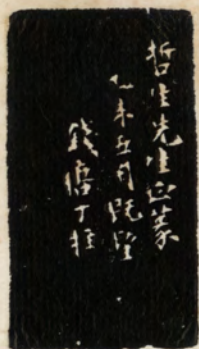 哲生先生正篆
乙未五月既望
錢唐丁桂